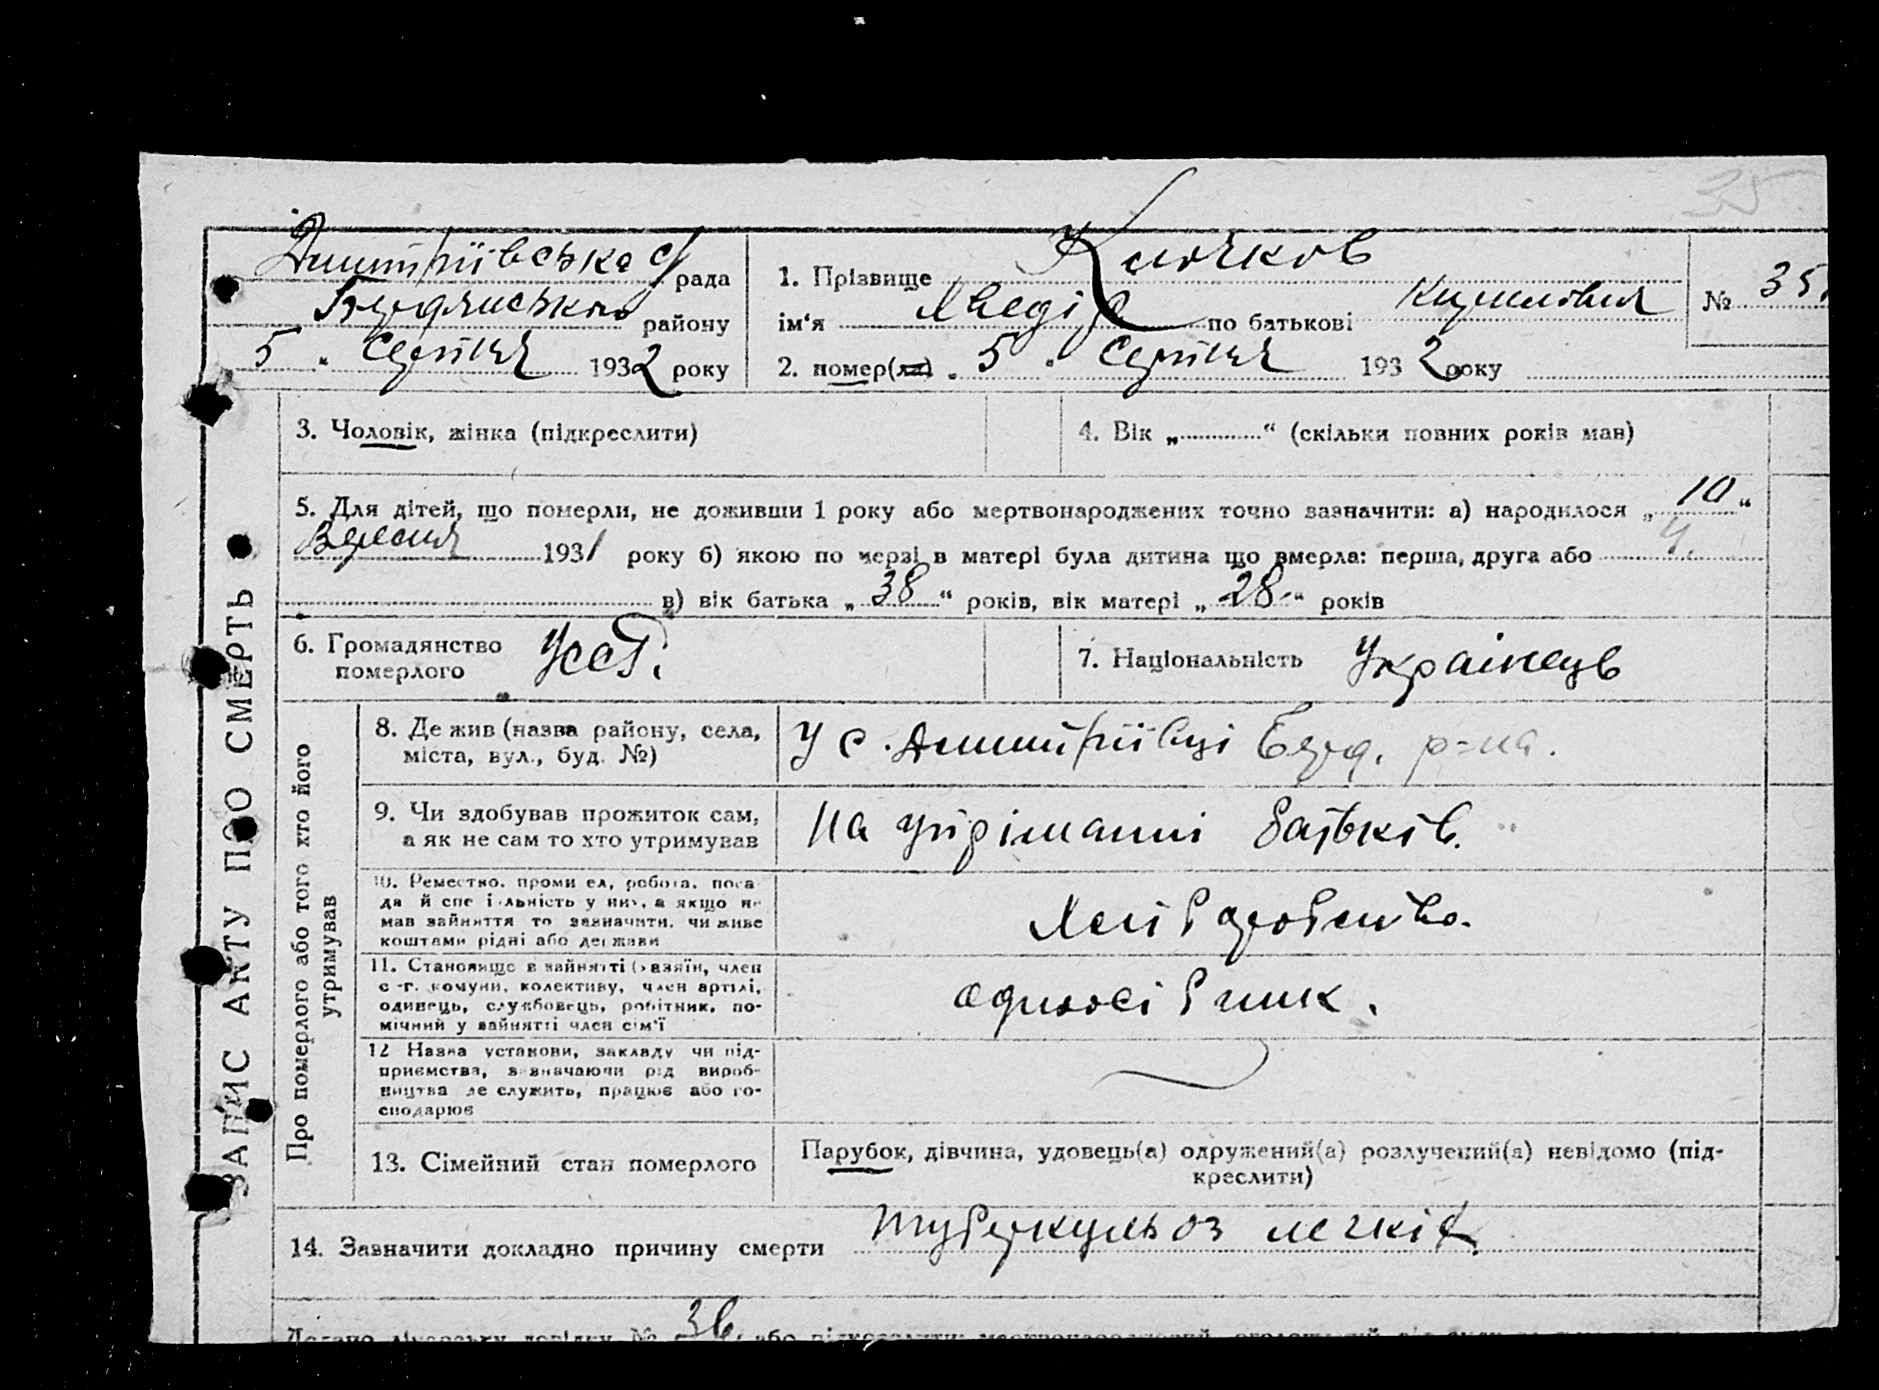 35
Дмитріївська с/рада
Будянського району
„5“ Серпня 1932 року
1. Прізвище Клочков
ім‘я по батькові Кирилович
№ 35.
2. помер(ла) „5“ Серпня 1932 року
3. Чоловік, жінка (підкреслити)
4. Вік „............“ (скільки повних років мав)
5. Для дітей, що померли, не доживши 1 року або мертвонароджених точно зазначити: а) народилося „10“
Вересня 1931 року б) якою по черзі в матері була дитина що вмерла: перша, друга або 4.
в) вік батька „38“ років, вік матері „28“ років
6. Громадянство
померлого УССР.
7. Національність Українець
ЗАПИС АКТУ ПРО СМЕРТЬ
Про померлого або того хто його
утримував
8. Де жив (назва району, села,
міста, вул., буд. №)
У с. Дмитріївці Буд. р-на.
9. Чи здобував прожиток сам,
а як не сам то хто утримував
На утріманні батьків.
10. Ремество, промисел, робота, поса-
да й спеціальність у них, а якщо не
мав зайняття то зазначити, чи живе
коштами рідні або держави
Хліборобство.
11. Становище в зайнятті (хазяїн, член
с.-г. комуни, колективу, член артілі,
одинець, службовець, робітник, по-
мічний у зайнятті член сім'ї
одноосібник.
12 Назва установи, закладу чи під-
приємства, зазначаючи рід вироб-
ництва де служить, працює або го-
сподарює
13. Сімейний стан померлого
Парубок, дівчина, удовець(а) одружений(а) розлучений(а) невідомо (під-
креслити)
14. Зазначити докладно причину смерти туберкульоз легкіх
Додано лікарську довідку № 36, або